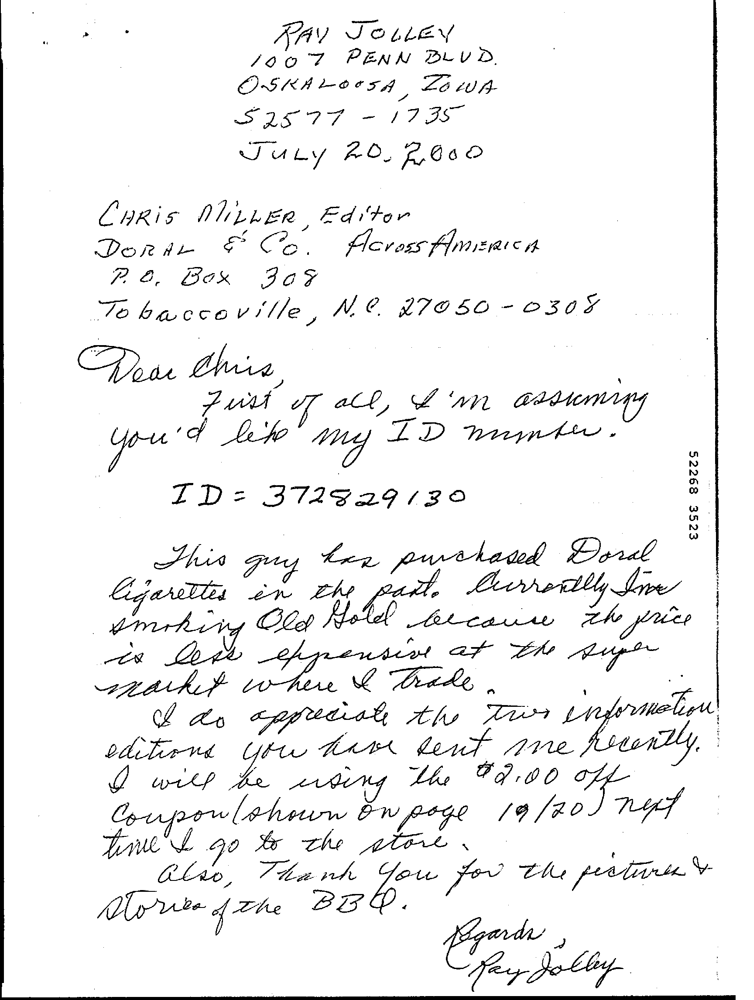 RAY JOLLEY
1007 PENN BLVD.
OSKALOOSA, IOWA
52577-1735
JULY 20, 2000
CHRIS MILLER, Editor
DORAL & Co. ACROSS AMERICA
P.O. Box 308
Tobaccoville, N.C. 27050-0308
Dear Chris,
First of all, I'm assuming
you'd like my ID number.
ID = 372829130
This guy has purchased Doral
Cigarettes in the past. Currently I'm
smoking Old Gold because the price
is less expensive at the super
market where I trade.
I do appreciate the two information
editions you have sent me recently.
I will be using the $2.00 off
Coupon (shown on page 19/20) next
time I go to the store.
Also, Thank You for the pictures &
stories of the BBQ.
Regards,
Ray Jolley
52268 3523